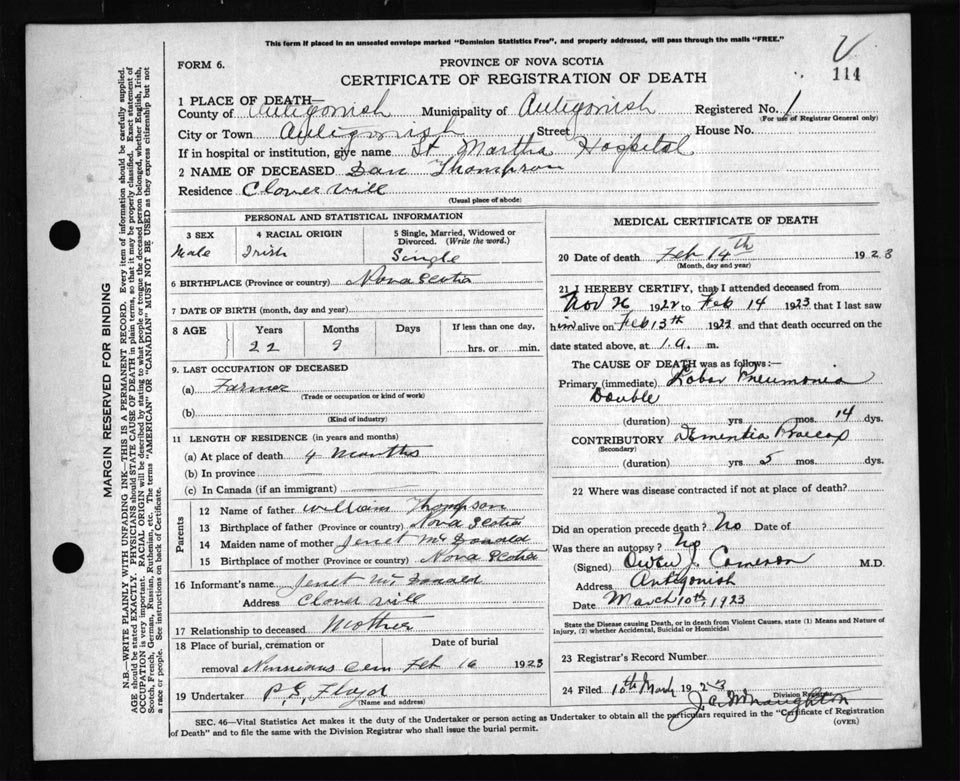 This form if placed in an unsealed envelope marked "Dominion Statistics Free", and properly addressed, will pass through the mails "FREE."
V
114
FORM 6.
PROVINCE OF NOVA SCOTIA
CERTIFICATE OF REGISTRATION OF DEATH
1 PLACE OF DEATH—
County of Antigonish Municipality of Antigonish Registered No. 1
(For use of Registrar General only)
City or Town Antigonish Street House No.
If in hospital or institution, give name St. Martha Hospital
2 NAME OF DECEASED Dan Thompson
Residence Clover vill
(Usual place of abode)
PERSONAL AND STATISTICAL INFORMATION
3 SEX 4 RACIAL ORIGIN 5 Single, Married, Widowed or Divorced. (Write the word.)
Male Irish Single
6 BIRTHPLACE (Province or country) Nova Scotia
7 DATE OF BIRTH (month, day and year)
8 AGE Years Months Days If less than one day,
22 9 hrs. or min.
9. LAST OCCUPATION OF DECEASED
(a) Farmer
(Trade or occupation or kind of work)
(b)
(Kind of industry)
11 LENGTH OF RESIDENCE (in years and months)
(a) At place of death 4 Months
(b) In province
(c) In Canada (if an immigrant)
Parents
12 Name of father William Thompson
13 Birthplace of father (Province or country) Nova Scotia
14 Maiden name of mother Jenet McDonald
15 Birthplace of mother (Province or country) Nova Scotia
16 Informant's name Jenet McDonald
Address Clover vill
17 Relationship to deceased Mother
18 Place of burial, cremation or Date of burial
removal Cem Feb 16 1923
19 Undertaker P.S. Floyd
(Name and address)
MEDICAL CERTIFICATE OF DEATH
20 Date of death Feb 14th 1923
(Month, day and year)
21 I HEREBY CERTIFY, that I attended deceased from
Nov 26 1922 to Feb 14 1923 that I last saw
him alive on Feb 13th 1923 and that death occurred on the
date stated above, at 1 a. m.
The CAUSE OF DEATH was as follows:—
Primary (immediate) Lobar Pneumonia
Double
(duration) yrs mos. 14 dys.
CONTRIBUTORY Dementia Praecox
(Secondary)
(duration) yrs 5 mos. dys.
22 Where was disease contracted if not at place of death?
Did an operation precede death? No Date of
Was there an autopsy? No
(Signed) Owen J. Cameron M.D.
Address Antigonish
Date March 10th, 1923
State the Disease causing Death, or in death from Violent Causes, state (1) Means and Nature of Injury, (2) whether Accidental, Suicidal or Homicidal
23 Registrar's Record Number
24 Filed 10th March 1923
J.A. McNaughton
Division Registrar
SEC. 46—Vital Statistics Act makes it the duty of the Undertaker or person acting as Undertaker to obtain all the particulars required in the "Certificate of Registration
of Death" and to file the same with the Division Registrar who shall issue the burial permit.
(OVER)
MARGIN RESERVED FOR BINDING
N.B.—WRITE PLAINLY WITH UNFADING INK—THIS IS A PERMANENT RECORD. Every item of information should be carefully supplied.
AGE should be stated EXACTLY. PHYSICIANS should STATE CAUSE OF DEATH in plain terms, so that it may be properly classified. Exact statement of
OCCUPATION is very important. RACIAL ORIGIN will be described by stating to what people or tongue the deceased person belonged, whether English, Irish,
Scotch, French, German, Russian, Ruthenian, etc. The terms "AMERICAN" OR "CANADIAN" MUST NOT BE USED as they express citizenship but not
a race or people. See instructions on back of Certificate.